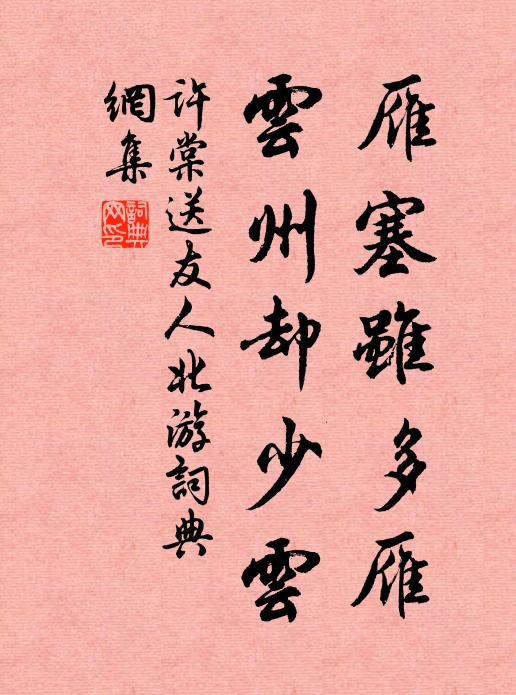 雁塞雖多雁
雲州却少雲
許棠送友人北游詞典
網集
詞典
网印